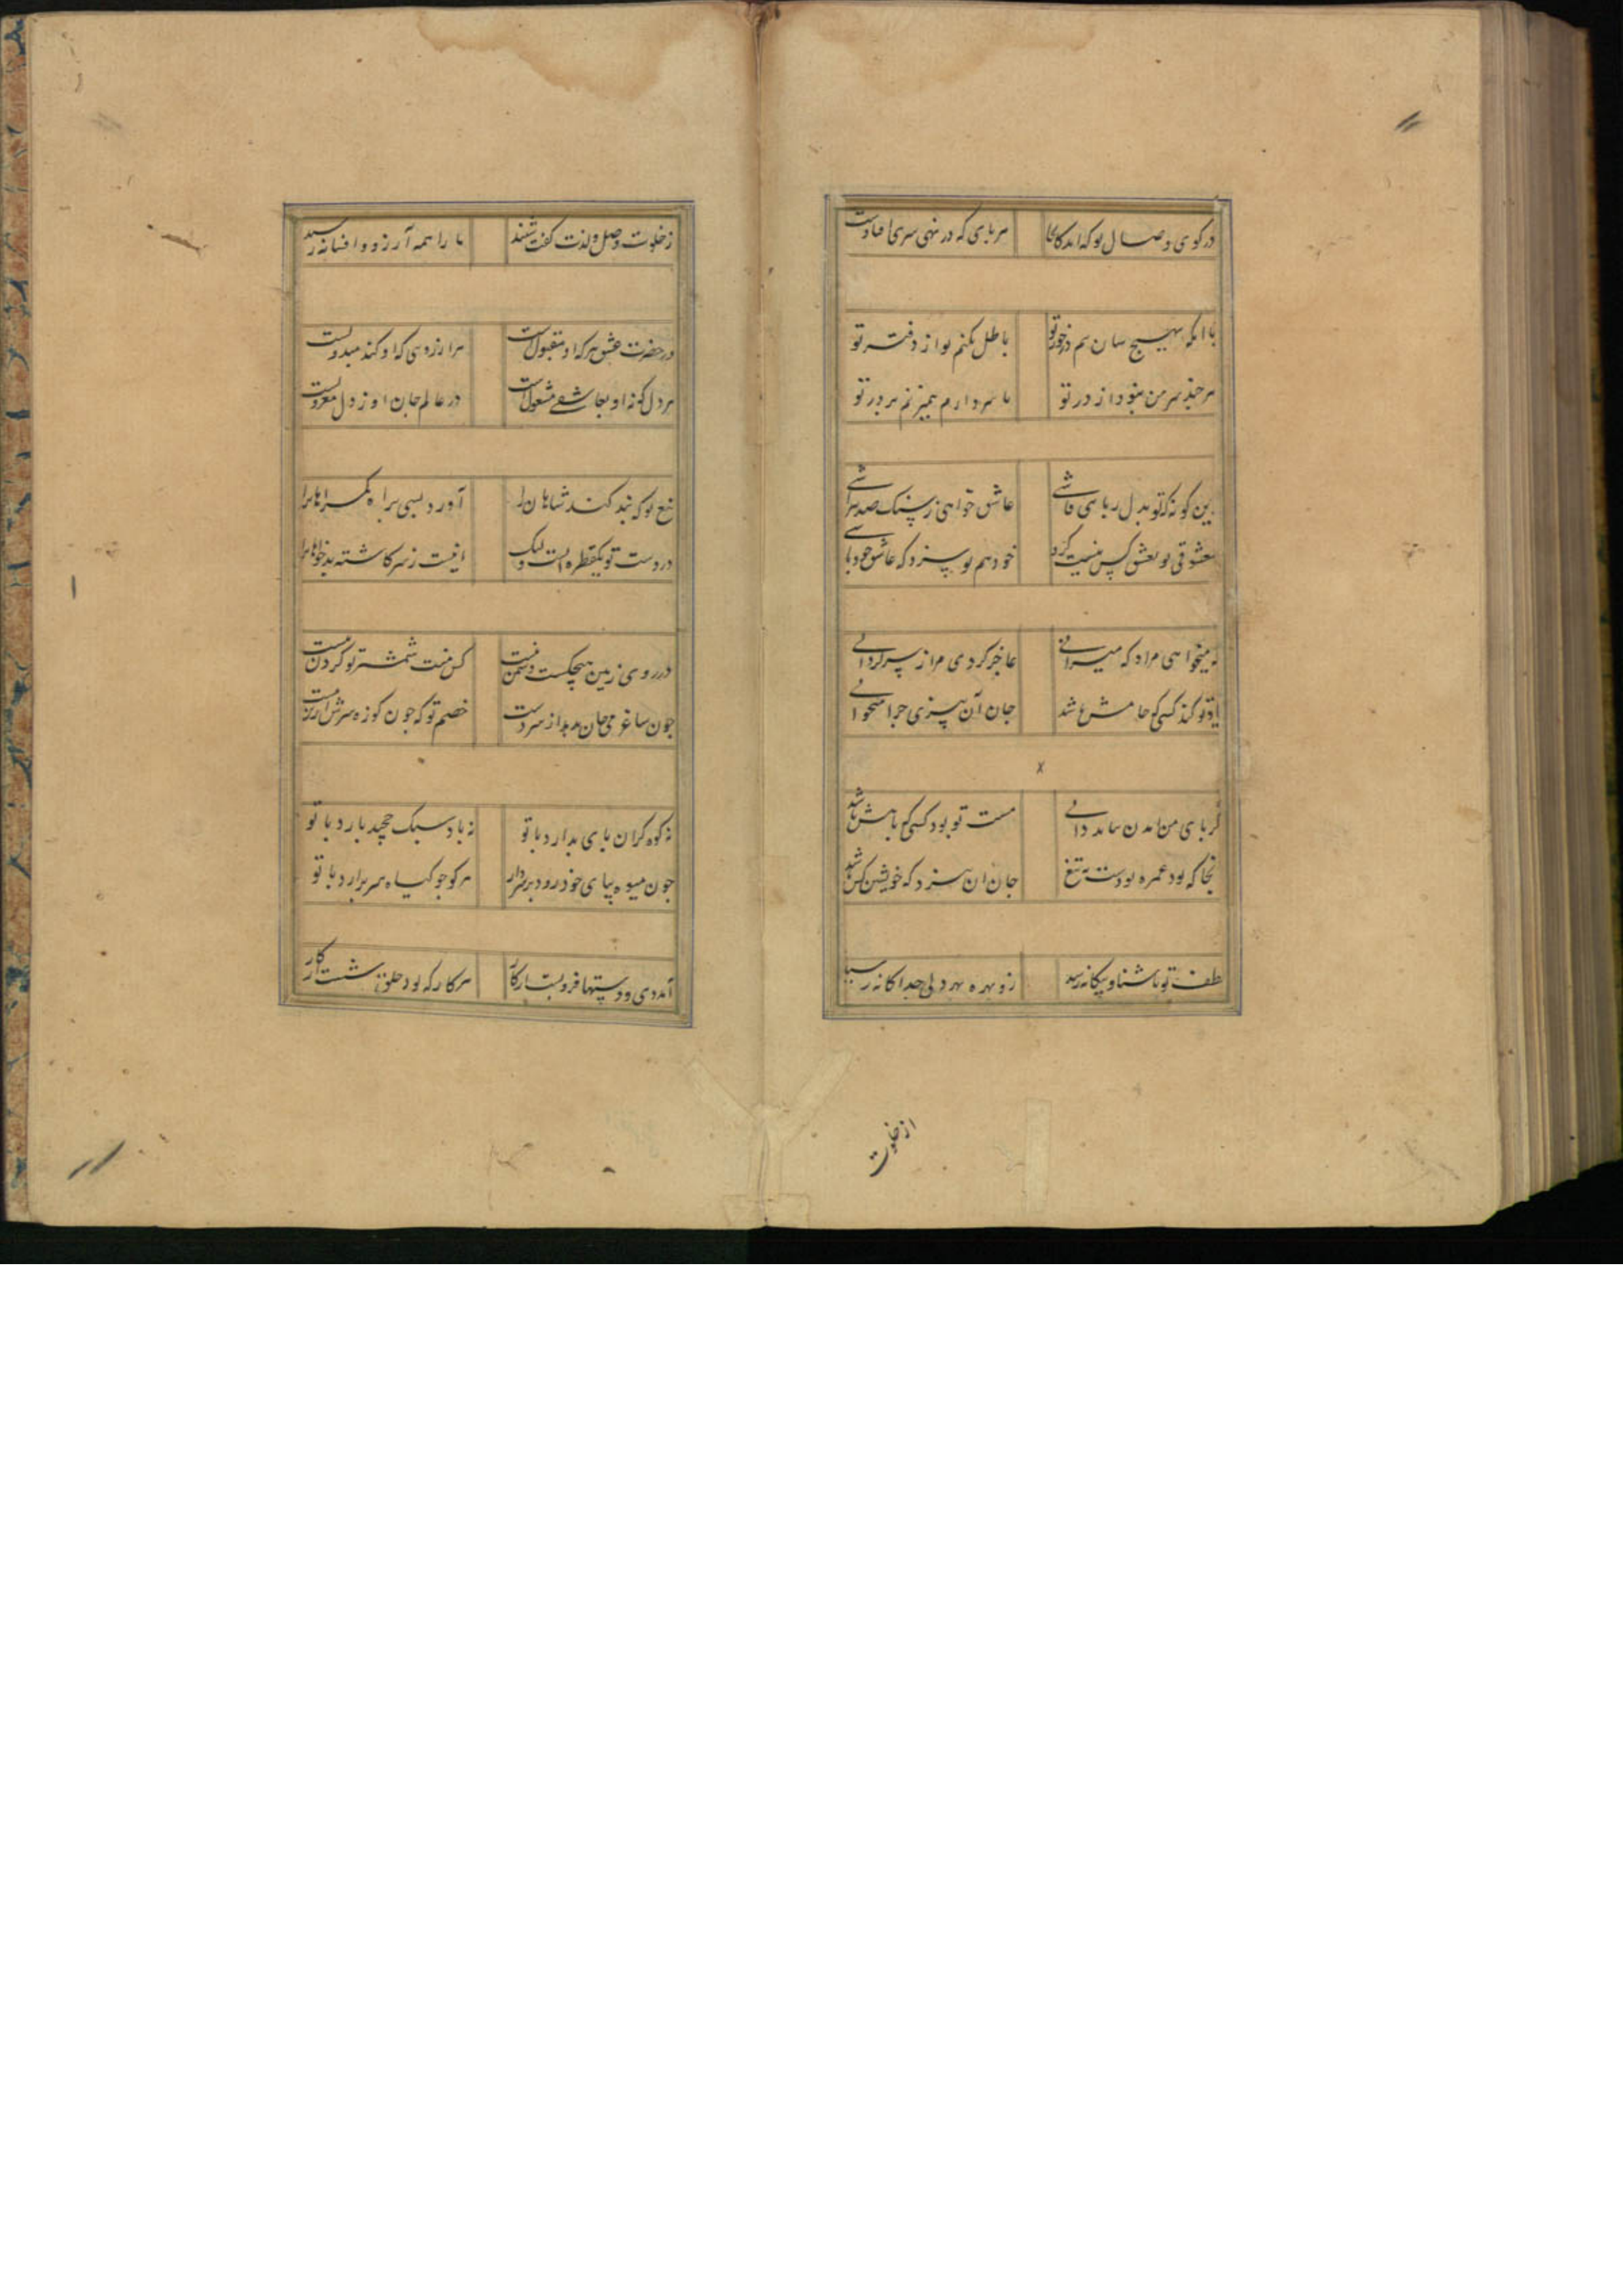 در کوی وصال تو که اید کانجا هر پای که در نهی سری افتادست
با انکه بهیچ سان نیم درخور تو باطل نکنم نوا ز دفتر تو
هر چند سر من نبود از در تو تا سر دارم همیزنم بر در تو
ین کونه که تو بدل ربایی فاشی عاشق خواهی ز سنک صد بتراشی
معشوقی تو بعشق کس نیست کرو خود هم تو سزد که عاشق خود باشی
نه میخواهی مرا و که میرانی عاجز کردی مرا ز سرکردانی
یاد تو کند کسی که خامش باشد جان آن
کر پای من امدن نداند دانی مست تو بود کسی که باهش باشد
نجا که بود غمزه تو دست به تیغ جان ان سزد که خویشتن کش باشد
لطف تو باشنا و بیکانه رسد زو بهره بهر دلی جداکانه رسد
از خلوت
ز خلوت وصل و لذت کفت شنند ما را همه آرزو و افسانه رسد
در حضرت عشق هر که او مقبولست هر ارزوی که او کند مبذولست
هر دل که نه او بعاشقی مشغولست در عالم جان او ز دل معزولست
تیغ تو که بند کند شاهان را آورد بسی براه کمراهانرا
در دست تو یکقطره ابست ولیک انیست ز سر کاشته بدخواهانرا
در روی زمین هیچکست دشمن نیست کش منت شمشیر تو کردن نیست
چون ساغر می جان بدهد از سر دست خصم تو که چون کوزه سرش
نه کوه کران پای بدارد با تو نه باد سبک بارد با تو
چون میوه بپای خود رود بر سر دار هر کو چو کیاه سر برارد با تو
آمد دی و دستها فرو بست ز کار هر کار که بود خلق